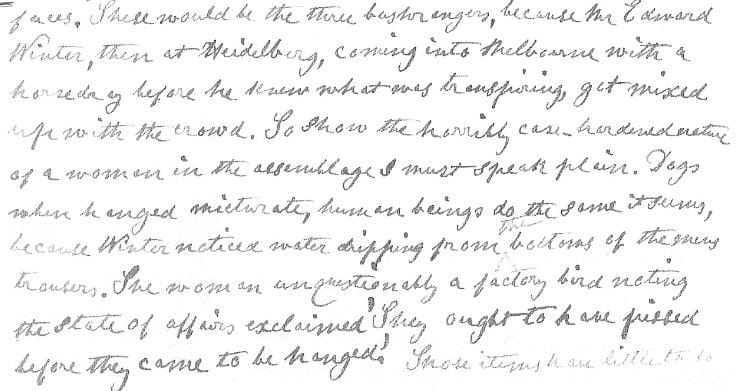 faces. These would be the three bushrangers, because Mr Edward
Winter, then at Heidelberg, coming into Melbourne with a
horsedray before he knew what was transpiring, got mixed
up with the crowd. To show the horribly case-hardened nature
of a woman in the assemblage I must speak plain. Dogs
when hanged micturate, human beings do the same it seems,
because Winter noticed water dripping from the bottoms of the mens
trousers. The woman unquestionably a factory bird noting
the state of affairs exclaimed "They ought to have pissed
before they came to be hanged". Those items have little to do